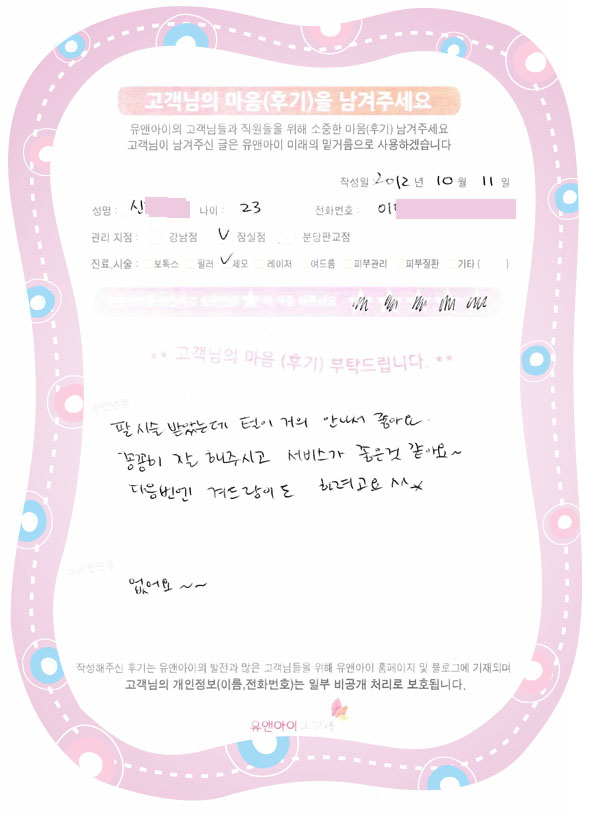 고객님의 마음(후기)을 남겨주세요
유앤아이의 고객님들과 직원들을 위해 소중한 마음(후기) 남겨주세요
고객님이 남겨주신 글은 유앤아이 미래의 밑거름으로 사용하겠습니다
작성일 : 2012 년 10 월 11 일
성명 : 신 나이 : 23 전화번호 : 01
관리 지점 : 강남점 ✓ 잠실점 분당판교점
진료,시술 : 보톡스 필러 ✓ 제모 레이저 여드름 피부관리 피부질환 기타 ( )
** 고객님의 마음 (후기) 부탁드립니다. **
팔 시술 받았는데 털이 거의 안나서 좋아요.
꼼꼼히 잘 해주시고 서비스가 좋은것 같아요~
다음번엔 겨드랑이도 하려고요 ^^*
없어요 ~~
작성해주신 후기는 유앤아이의 발전과 많은 고객님들을 위해 유앤아이 홈페이지 및 블로그에 기재되며
고객님의 개인정보(이름,전화번호)는 일부 비공개 처리로 보호됩니다.
유앤아이